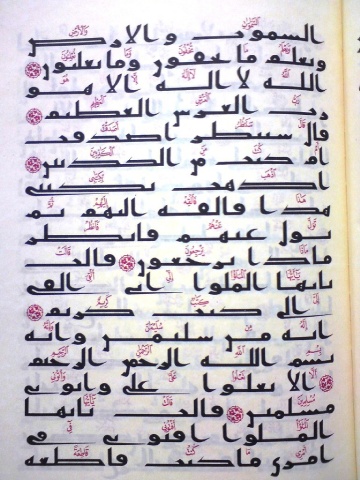 السموت والارض
ويعلم ما تخفون وما تعلنون
الله لا اله الا هو
رب العرش العظيم
قال سننظر اصدقت
ام كنت من الكذبين
اذهب بكتبي
هذا فالقه اليهم ثم
تول عنهم فانظر
ماذا يرجعون قالت
يايها الملوا اني القي
الي كتب كريم
انه من سليمن وانه
بسم الله الرحمن الرحيم
الا تعلوا علي واتوني
مسلمين قالت يايها
الملوا افتوني في
امري ما كنت قاطعة